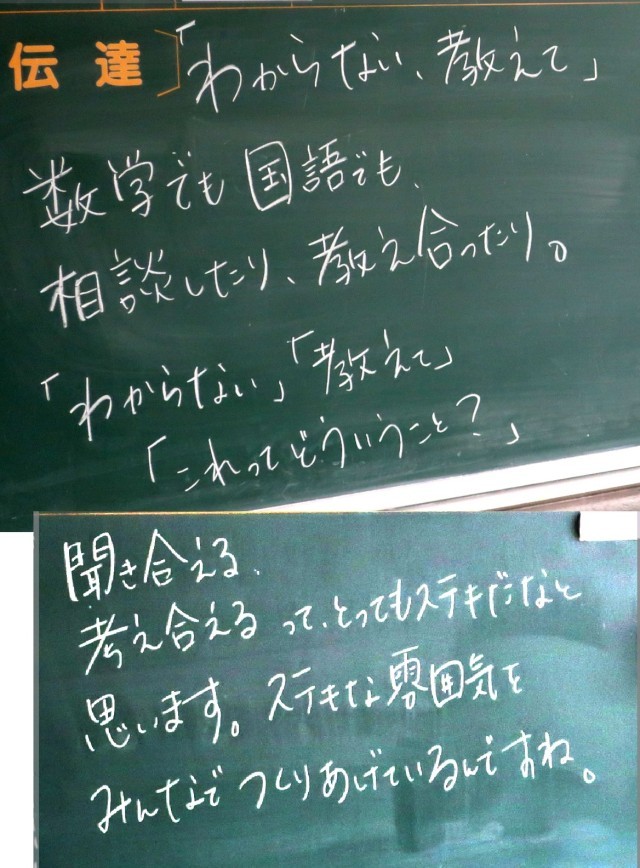 伝達 「わからない、教えて」
数学でも国語でも、
相談したり、教え合ったり。
「わからない」「教えて」
「これってどういうこと？」
聞き合える、
考え合えるって、とってもステキだなと
思います。ステキな雰囲気を
みんなでつくりあげているんですね。